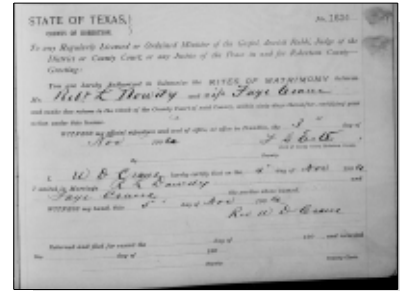 STATE OF TEXAS,
COUNTY OF ROBERTSON
No. 1834
To any Regularly Licensed or Ordained Minister of the Gospel, Jewish Rabbi, Judge of the
District or County Court, or any Justice of the Peace in and for Robertson County—
Greeting:
You are hereby Authorized to Solemnize the RITES OF MATRIMONY between
Mr. Robt L Dowdy and Miss Faye Crane
and make due return to the Clerk of the County Court of said County, within sixty days thereafter, certifying your
action under this license.
WITNESS my official signature and seal of office at office in Franklin, the 3 day of
Nov 190
By
Deputy
I, W D Crane hereby certify that on the day of Nov 190
I united in Marriage R L Dowdy and
Faye Crane the parties above named.
WITNESS my hand, this 5 day of Nov 190
Rev W D Crane
Returned and filed for record the day of 190 and recorded
the day of 190
Deputy
County Clerk